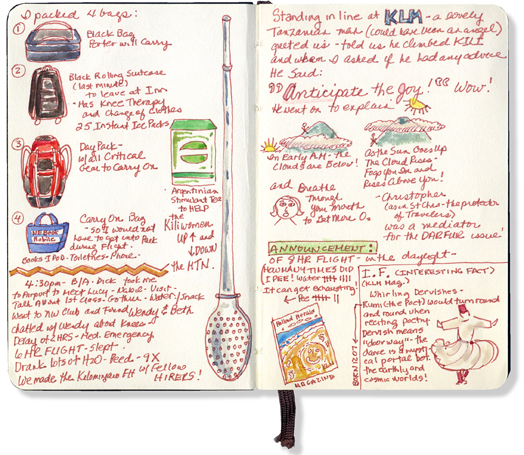 I packed 4 bags:
1
Black Bag
Porter will Carry
2
Black Rolling Suitcase
(last minute)
to leave at Inn
- Has Knee Therapy
and Change of Clothes
25 Instant Ice Packs
3
Day Pack -
w/all Critical
Gear to Carry On
4
Carry On Bag
- so I would not
have to get into Pack
during Flight.
Books I Pod. Toiletries - Phone.
Argentinian
Stimulant Tea
to HELP
the
Kiliwomen
UP ↑ and
↓ DOWN
the MTN.
4:30pm - B/A. Dick took me
to Airport to Meet Lucy - Visit -
Talk About 1st Class - Water/Snack
Went to NW Club and Found Wendy & Beth
Chatted w/Wendy about Knees -
Delay of 2 HRS - Med. Emergency
6 HR FLIGHT - Slept.
Drank lots of H2O - Peed - 9X
We made the Kilomigaro Flt w/ Fellow
HIKERS!
Standing in line at KLM - a lovely
Tanzanian man (could have been an angel)
greeted us - told us he climbed KILI
and whom I asked if he had any advice
He Said:
"Anticipate the Joy!" Wow!
He went on to explain
On Early AM - the
Clouds are Below!
As the Sun Comes Up
The Cloud Rises -
Fogs You In and
Rises Above You!
and Breathe
Through
You Mouth
to Get More O2
- Christopher
(as in St Chris - the protector
of Travelers)
was a mediator
for the DARFUR issue!
ANNOUNCEMENT:
OF 8 HR FLIGHT - in the daylight -
HOW MANY TIMES DID
I PEE! Water
It can get exhausting!
← Pee
Holland Herald
MAGAZINE
I.F. (INTERESTING FACT)
(KLM MAG.)
Whirling Dervishes -
Rumi (the Poet) would turn round
and round when
reciting poetry
Dervish means
"doorway" - the
dance is a mystical
portal bet.
the earthly and
cosmic worlds!